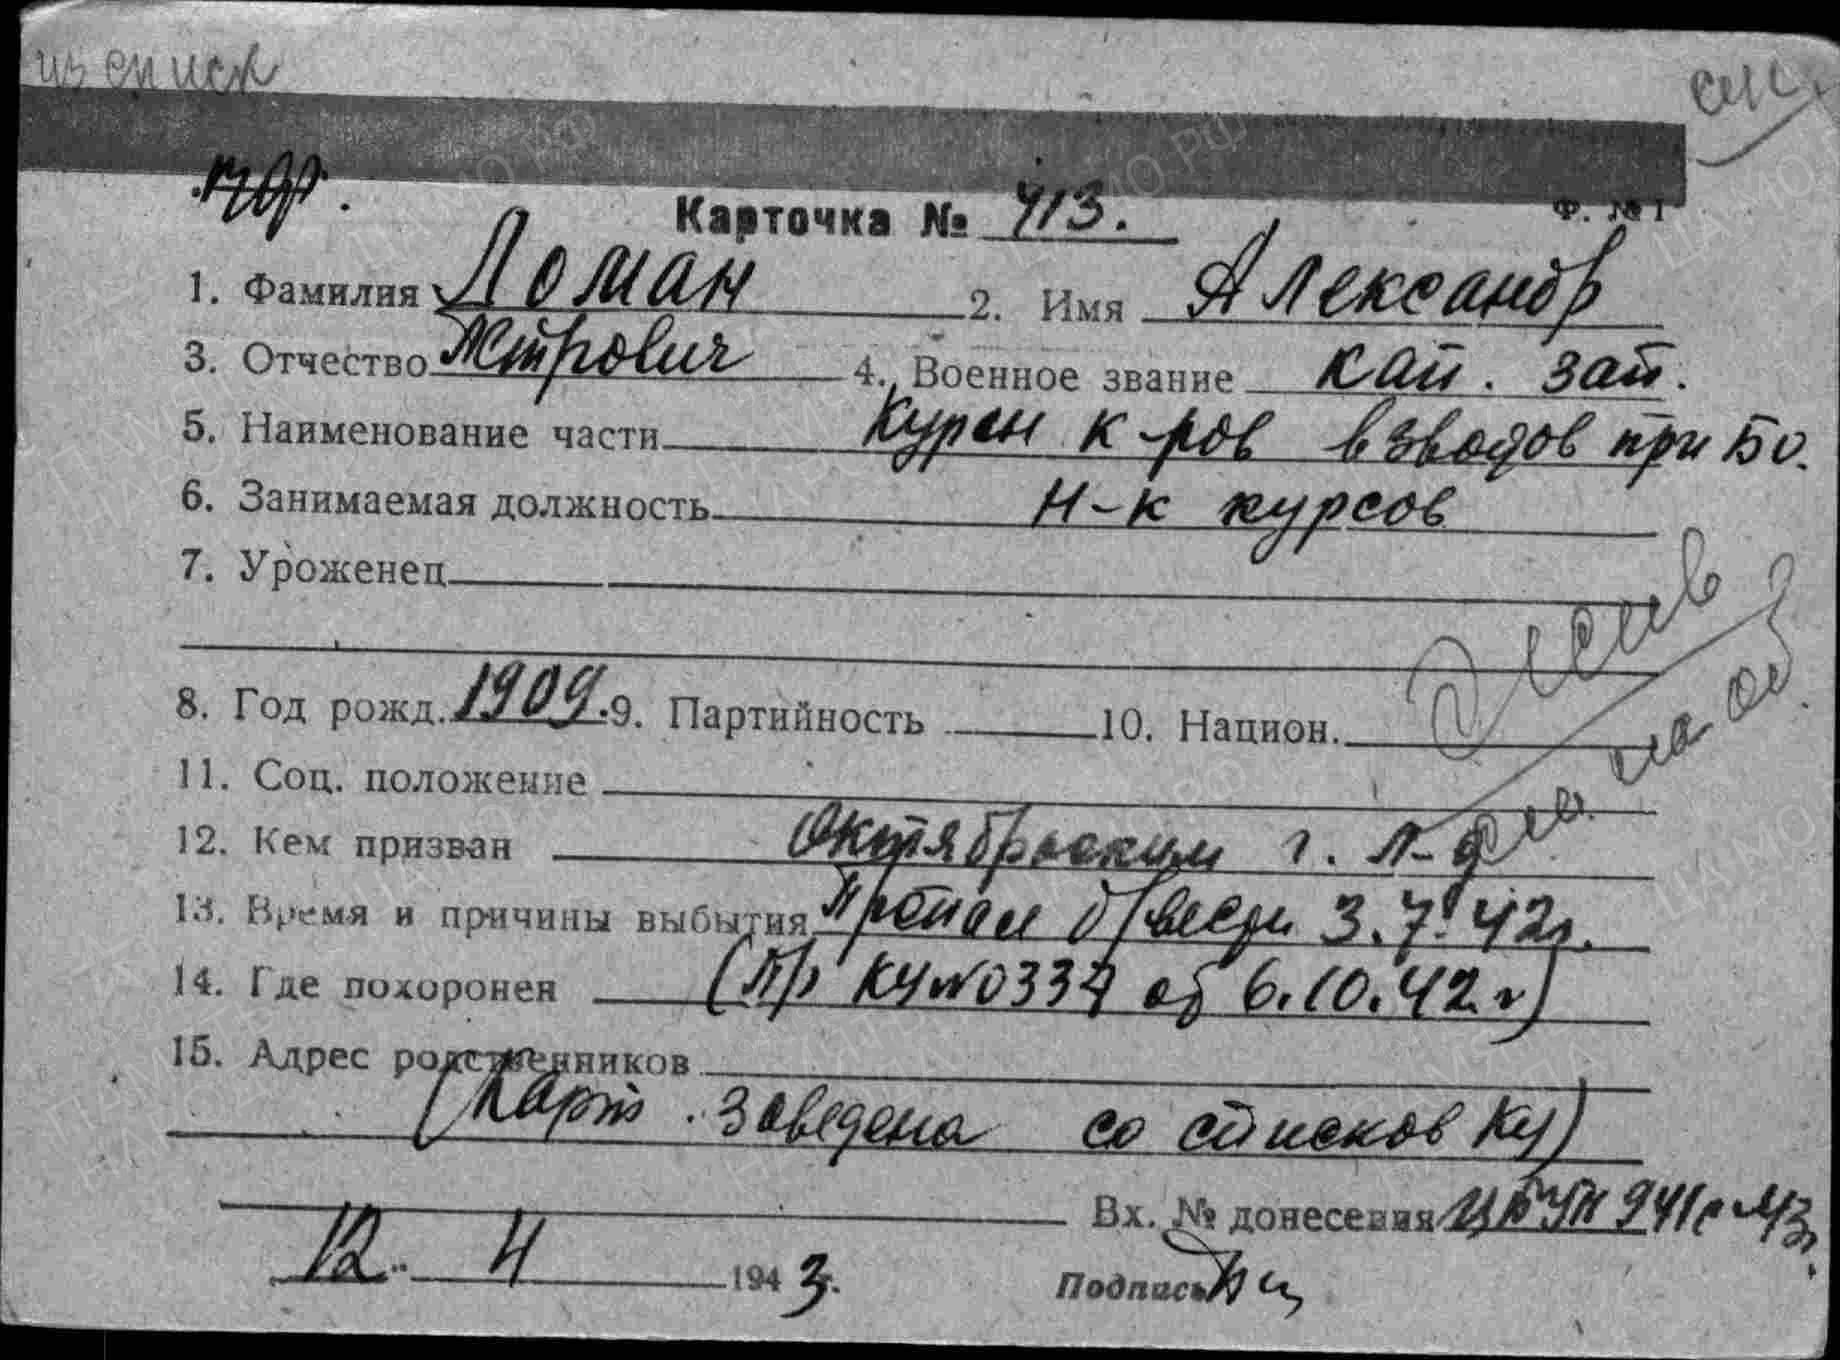 из списк
Карточка № 413.
Ф. № 1
1. Фамилия Ломан 2. Имя Александр
3. Отчество Петрович 4. Военное звание кап. зап.
5. Наименование части Курсы к-ров взводов при БО.
6. Занимаемая должность н-к курсов
7. Уроженец
8. Год рожд. 1909. 9. Партийность 10. Национ.
11. Соц. положение
12. Кем призван Октябрьским г. Л-д
13. Время и причины выбытия Пропал б/вести 3.7.42г.
14. Где похоронен (Пр КУ №0337 об 6.10.42 г)
15. Адрес родственников
(Карт. заведена со списков КУ)
Вх. № донесения 941с-43г.
12 " 4 1943г.
Подпись